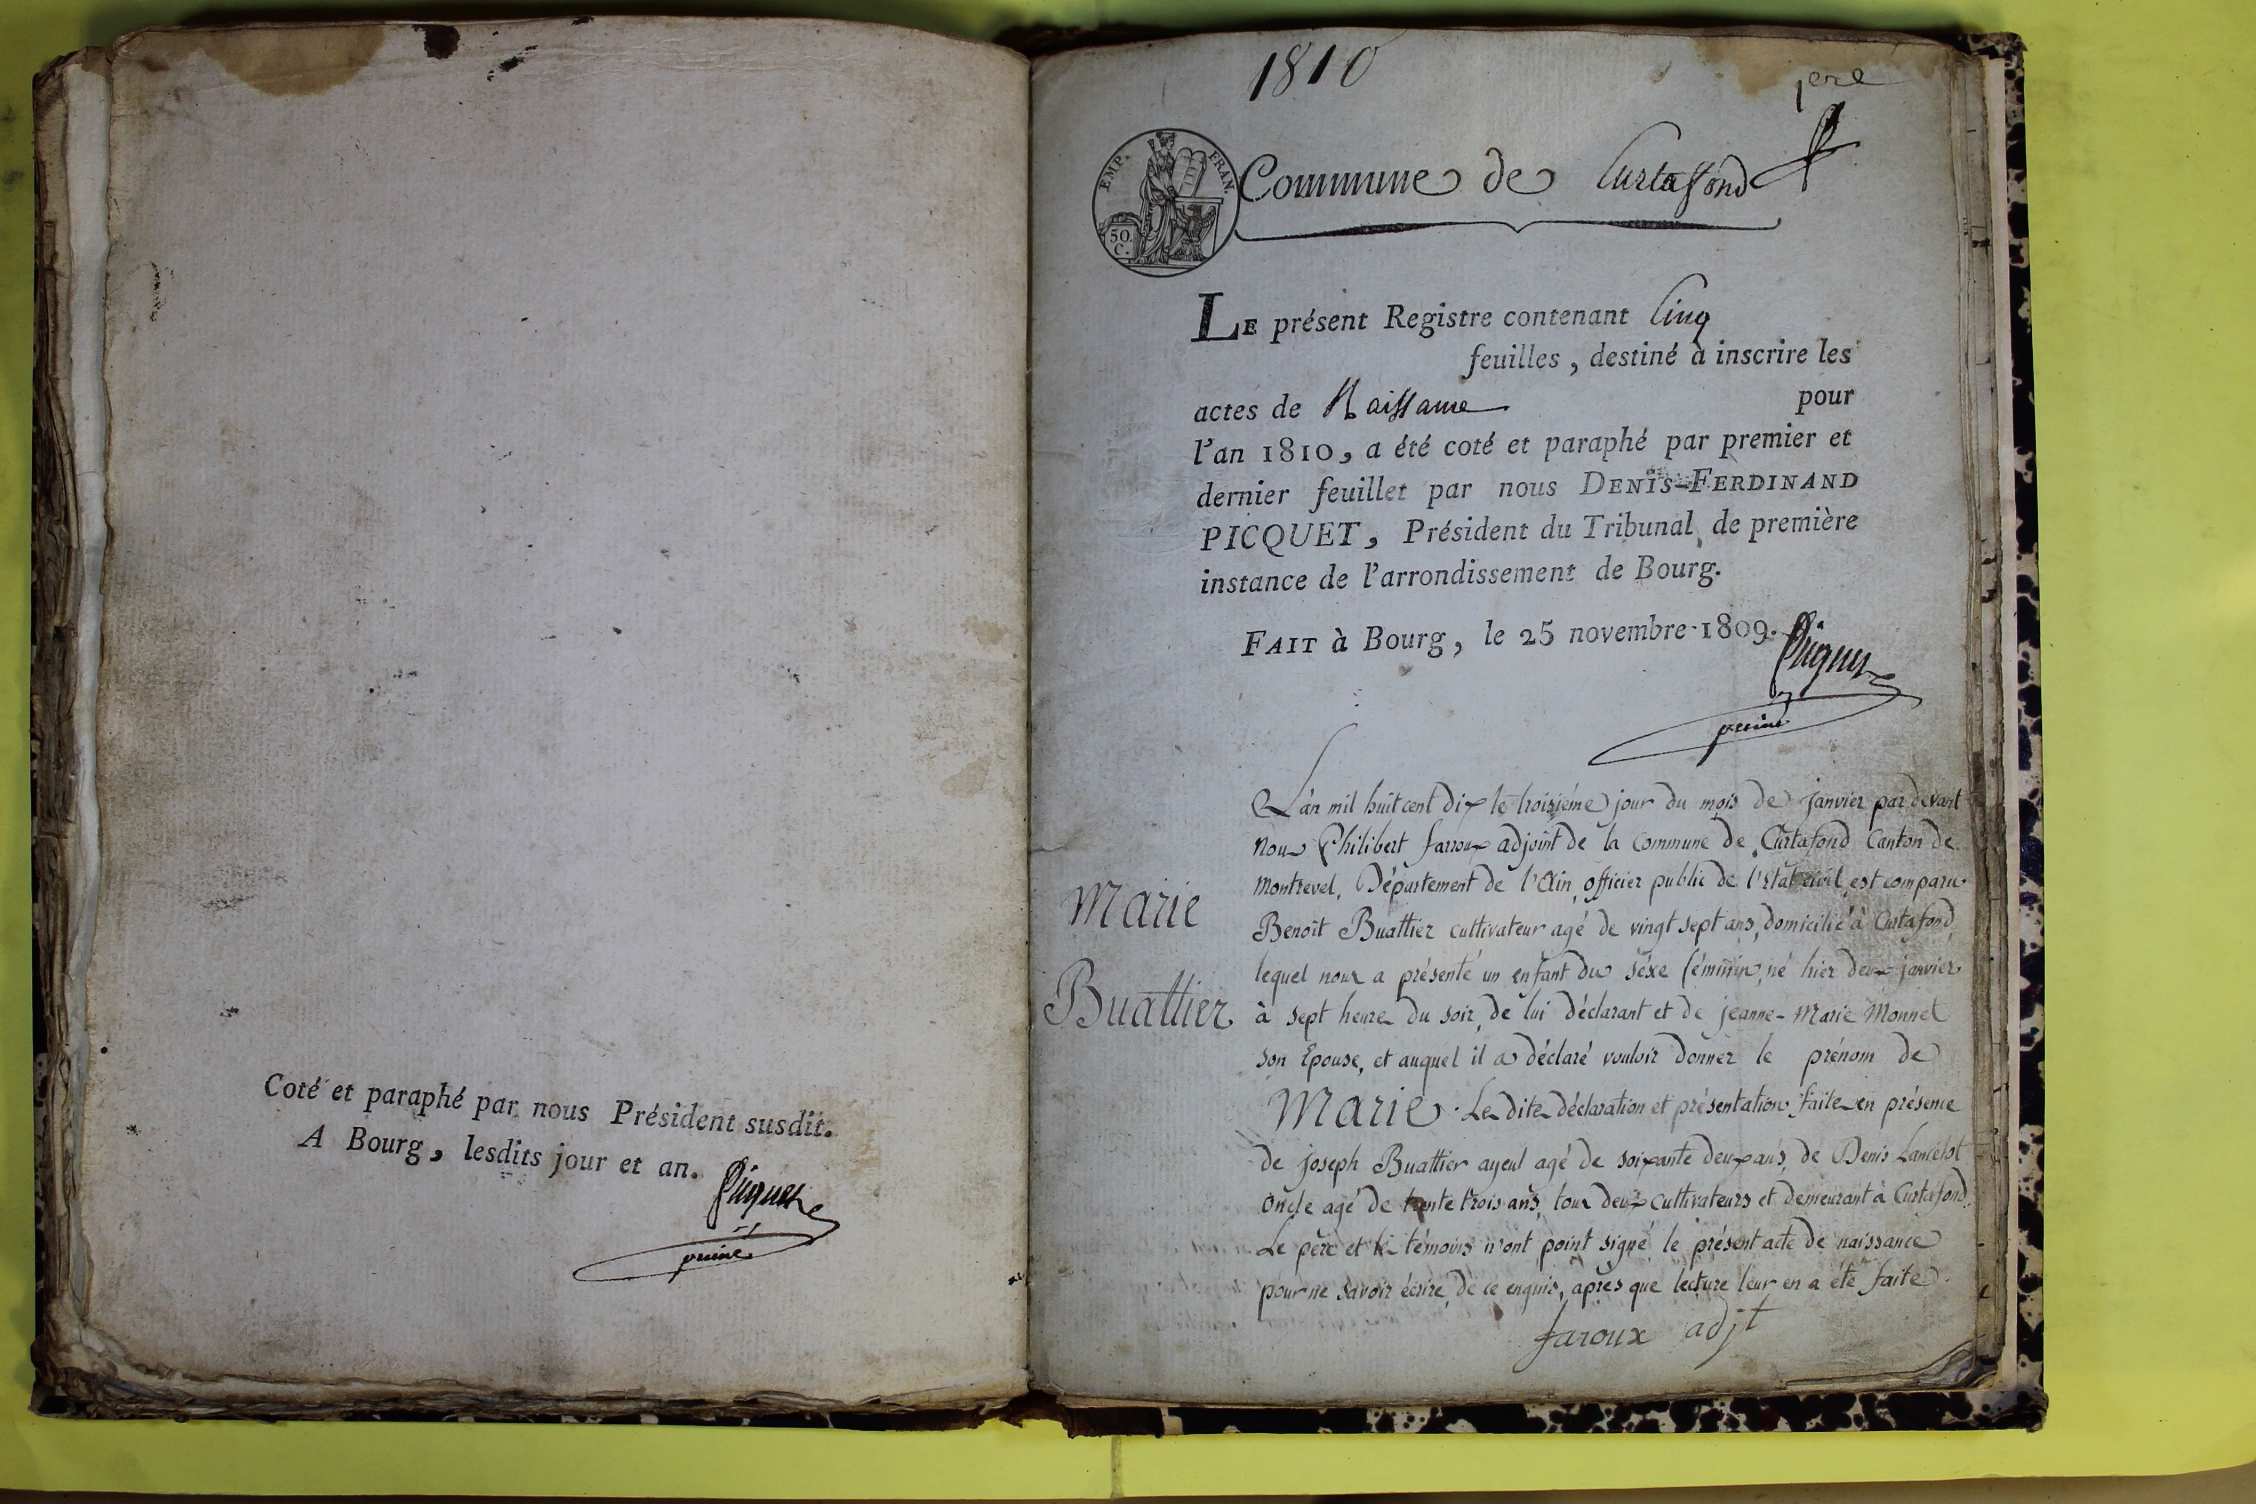 Coté et paraphé par nous Président susdit.
A Bourg, lesdits jour et an.
Picquet
1810
1ere
EMP. FRAN.
50.
C.
Commune de Curtafond
LE présent Registre contenant Cinq
feuilles, destiné à inscrire les
actes de Naissance pour
l'an 1810, a été coté et paraphé par premier et
dernier feuillet par nous DENIS-FERDINAND
PICQUET, Président du Tribunal de première
instance de l'arrondissement de Bourg.
FAIT à Bourg, le 25 novembre 1809.
Picquet
Marie
Buattier
L'an mil huit cent dix le troisiéme jour du mois de janvier par devant
Nous Philibert farroux adjoint de la Commune de Curtafond Canton de
Montrevel, Département de l'Ain, officier public de l'état civil, est comparu
Benoit Buattier cultivateur agé de vingt sept ans, domicilié à Curtafond,
lequel nous a présenté un enfant du séxe féminin, né hier deux janvier
à sept heure du soir, de lui déclarant et de jeanne-Marie Monnet
son Epouse, et auquel il a déclaré vouloir donner le prénom de
Marie. Les dites déclaration et présentation faite en présence
de joseph Buattier ayeul agé de soixante deux ans, de Denis Lancelot
oncle agé de trente trois ans, tous deux cultivateurs et demeurant à Curtafond.
Le père et les témoins n'ont point signé le présent acte de naissance
pour ne savoir écrire, de ce enquis, après que lecture leur en a été faite.
faroux adjt